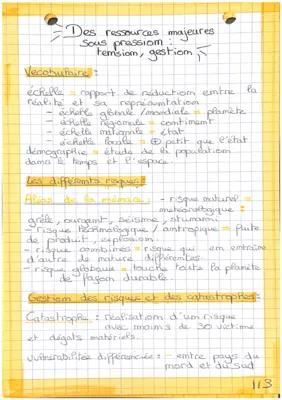 Des ressources majeures
sous pression :
tension, gestion
Vocabulaire :
échelle = rapport de réduction entre la
réalité et sa représentation
- échelle globale / mondiale = planète
- échelle régionale = continent
- échelle nationale = état
- échelle locale = + petit que l'état
démographie = étude de la population
dans le temps et l'espace.
Les différents risques :
Aléas de la : - risque naturel =
météorologique :
grêle, ouragant, séisme, stunami
- risque technologique / antropique = fuite
de produit, explosion.
- risque combinés = risque qui en entraine
d'autre de nature différentes.
- risque globaux = touche toute la planète
de façon durable.
Gestion des risques et des catastrophes :
Catastrophe : réalisation d'un risque
avec moins de 30 victime
et dégats matériels.
vulnérabilitée différenciée : - entre pays du
nord et du sud
1/3